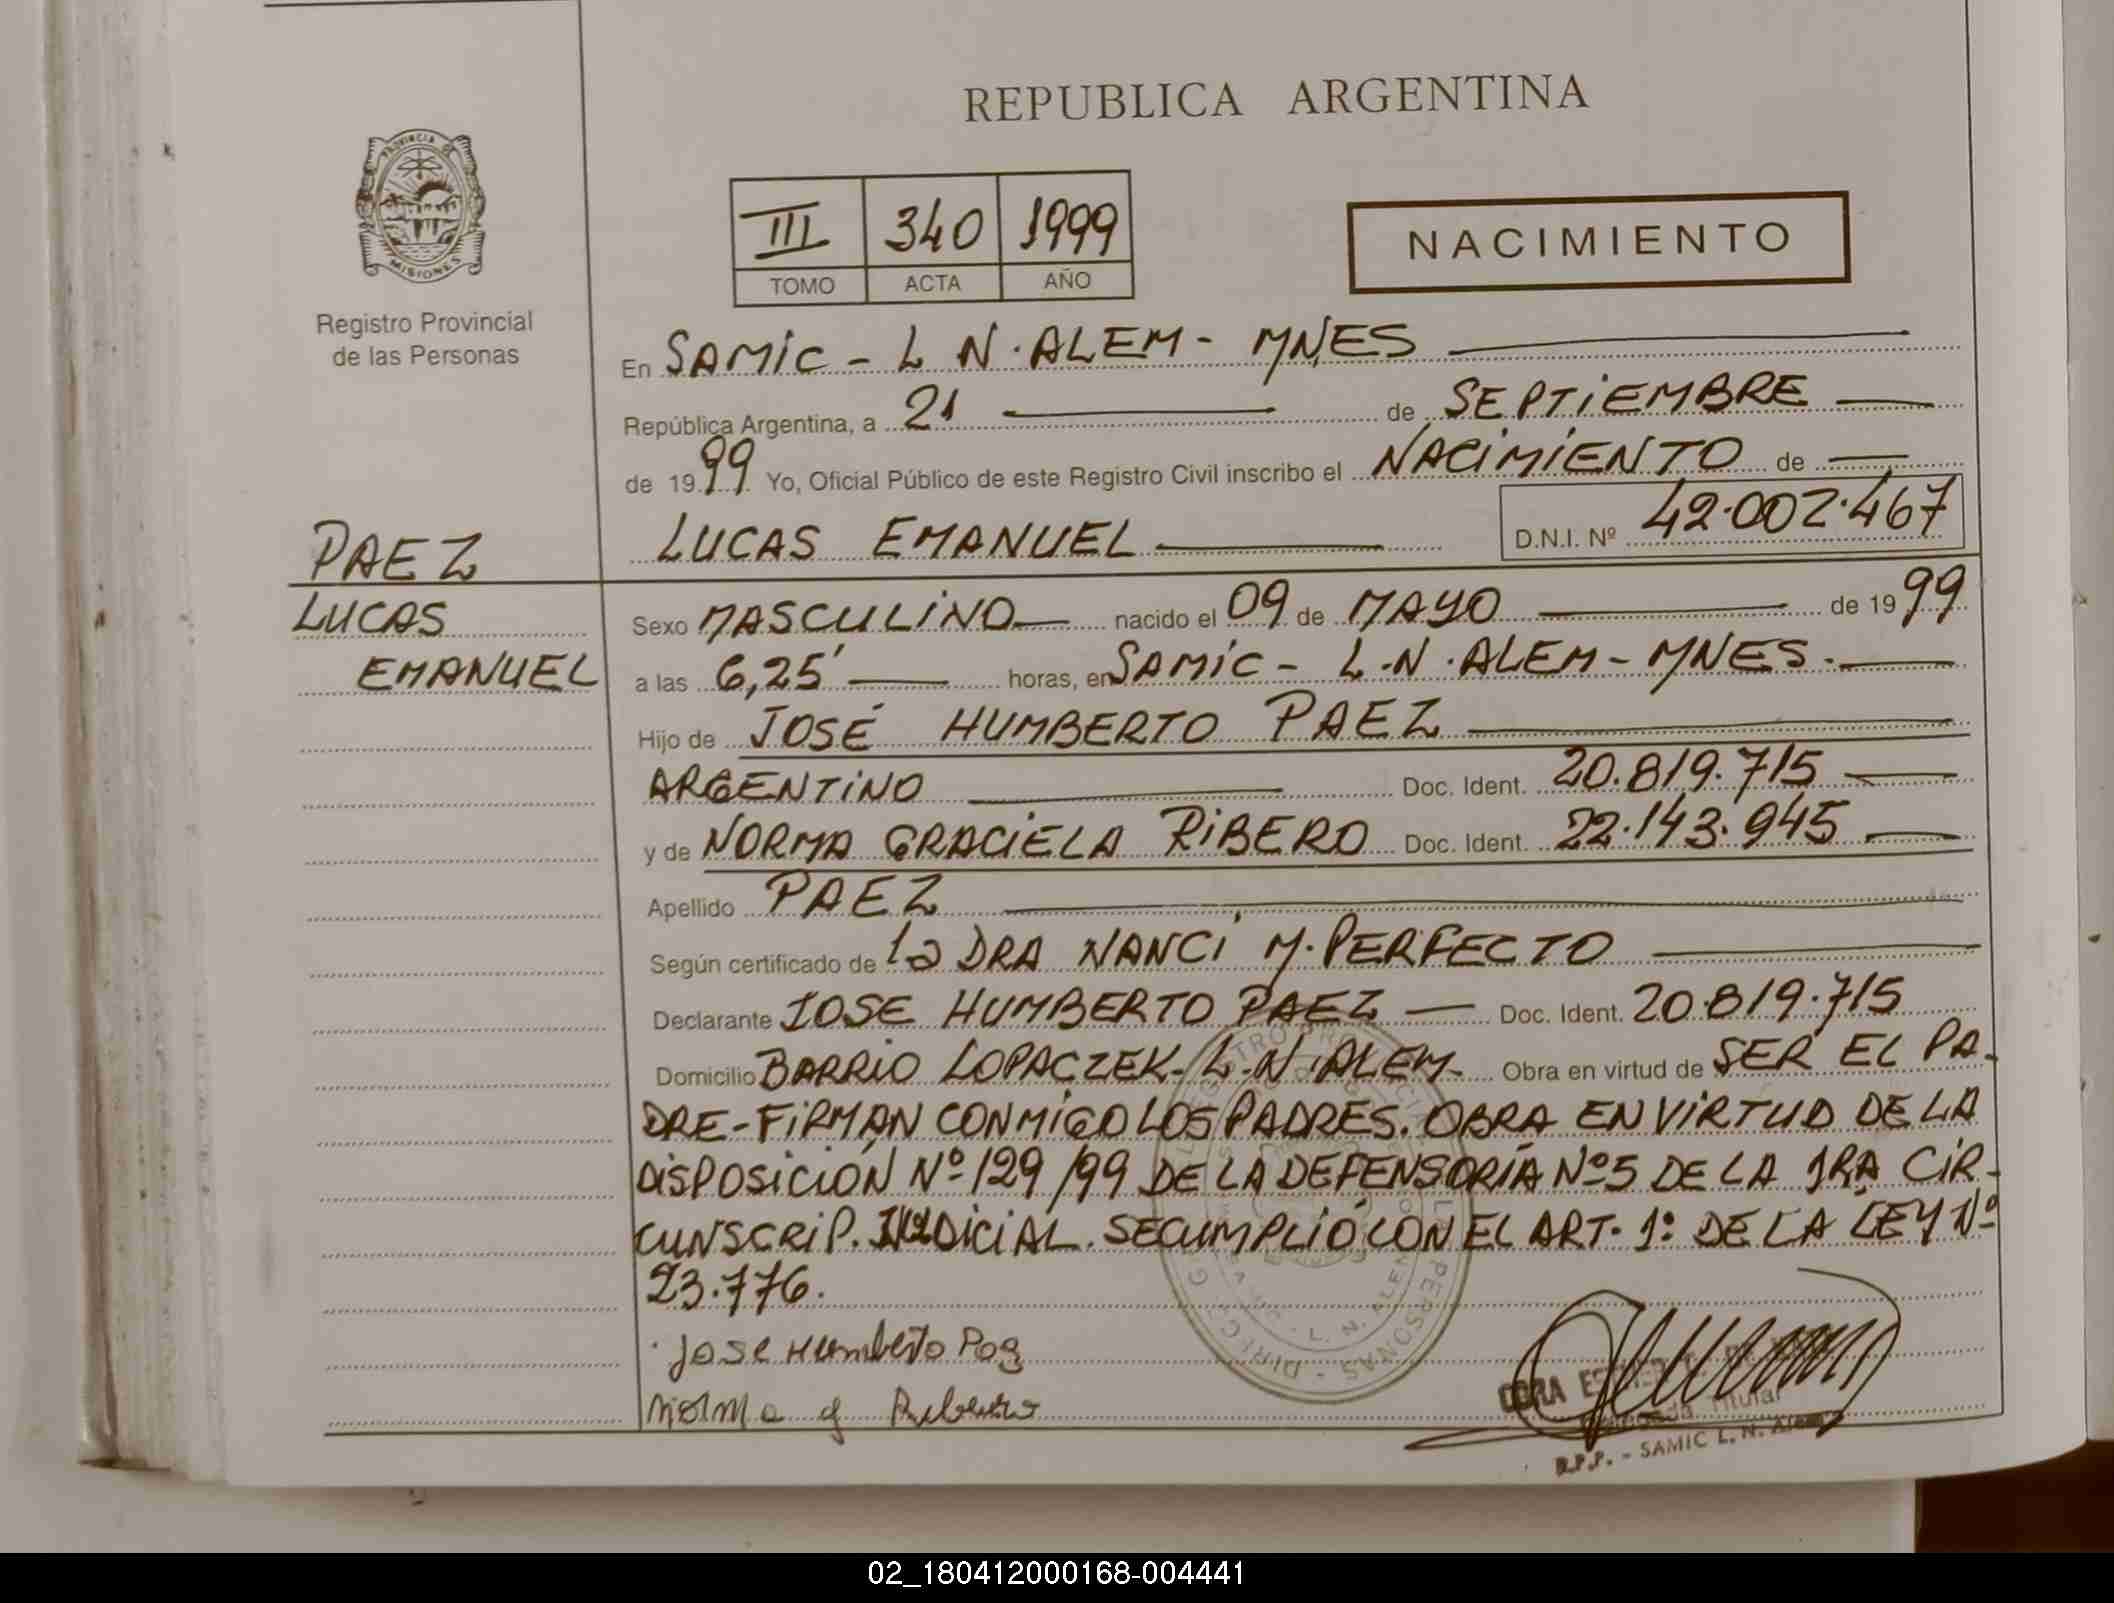 REPUBLICA ARGENTINA
PROVINCIA DE
MISIONES
Registro Provincial
de las Personas
III 340 1999
TOMO ACTA AÑO
NACIMIENTO
En SAMIC - L N. ALEM - MNES
República Argentina, a 21 de SEPTIEMBRE
de 1999 Yo, Oficial Público de este Registro Civil inscribo el NACIMIENTO de
LUCAS EMANUEL D.N.I. Nº 42.002.467
PAEZ
LUCAS
EMANUEL
Sexo MASCULINO nacido el 09 de MAYO de 1999
a las 6,25' horas, en SAMIC - L.N. ALEM - MNES.
Hijo de JOSÉ HUMBERTO PAEZ
ARGENTINO Doc. Ident. 20.819.715
y de NORMA GRACIELA RIBERO Doc. Ident. 22.143.945
Apellido PAEZ
Según certificado de la DRA NANCI M. PERFECTO
Declarante JOSE HUMBERTO PAEZ Doc. Ident. 20.819.715
Domicilio BARRIO LOPACZEK - L.N. ALEM - Obra en virtud de SER EL PA-
DRE - FIRMAN CONMIGO LOS PADRES. OBRA EN VIRTUD DE LA
DISPOSICIÓN Nº 129/99 DE LA DEFENSORÍA Nº 5 DE LA 1RA CIR-
CUNSCRIP. JUDICIAL. SE CUMPLIÓ CON EL ART. 1º DE LA LEY Nº
23.776.
Jose Humberto Paez
Norma g Ribero
Titular
R.P.P. - SAMIC L. N. Alem
02_180412000168-004441